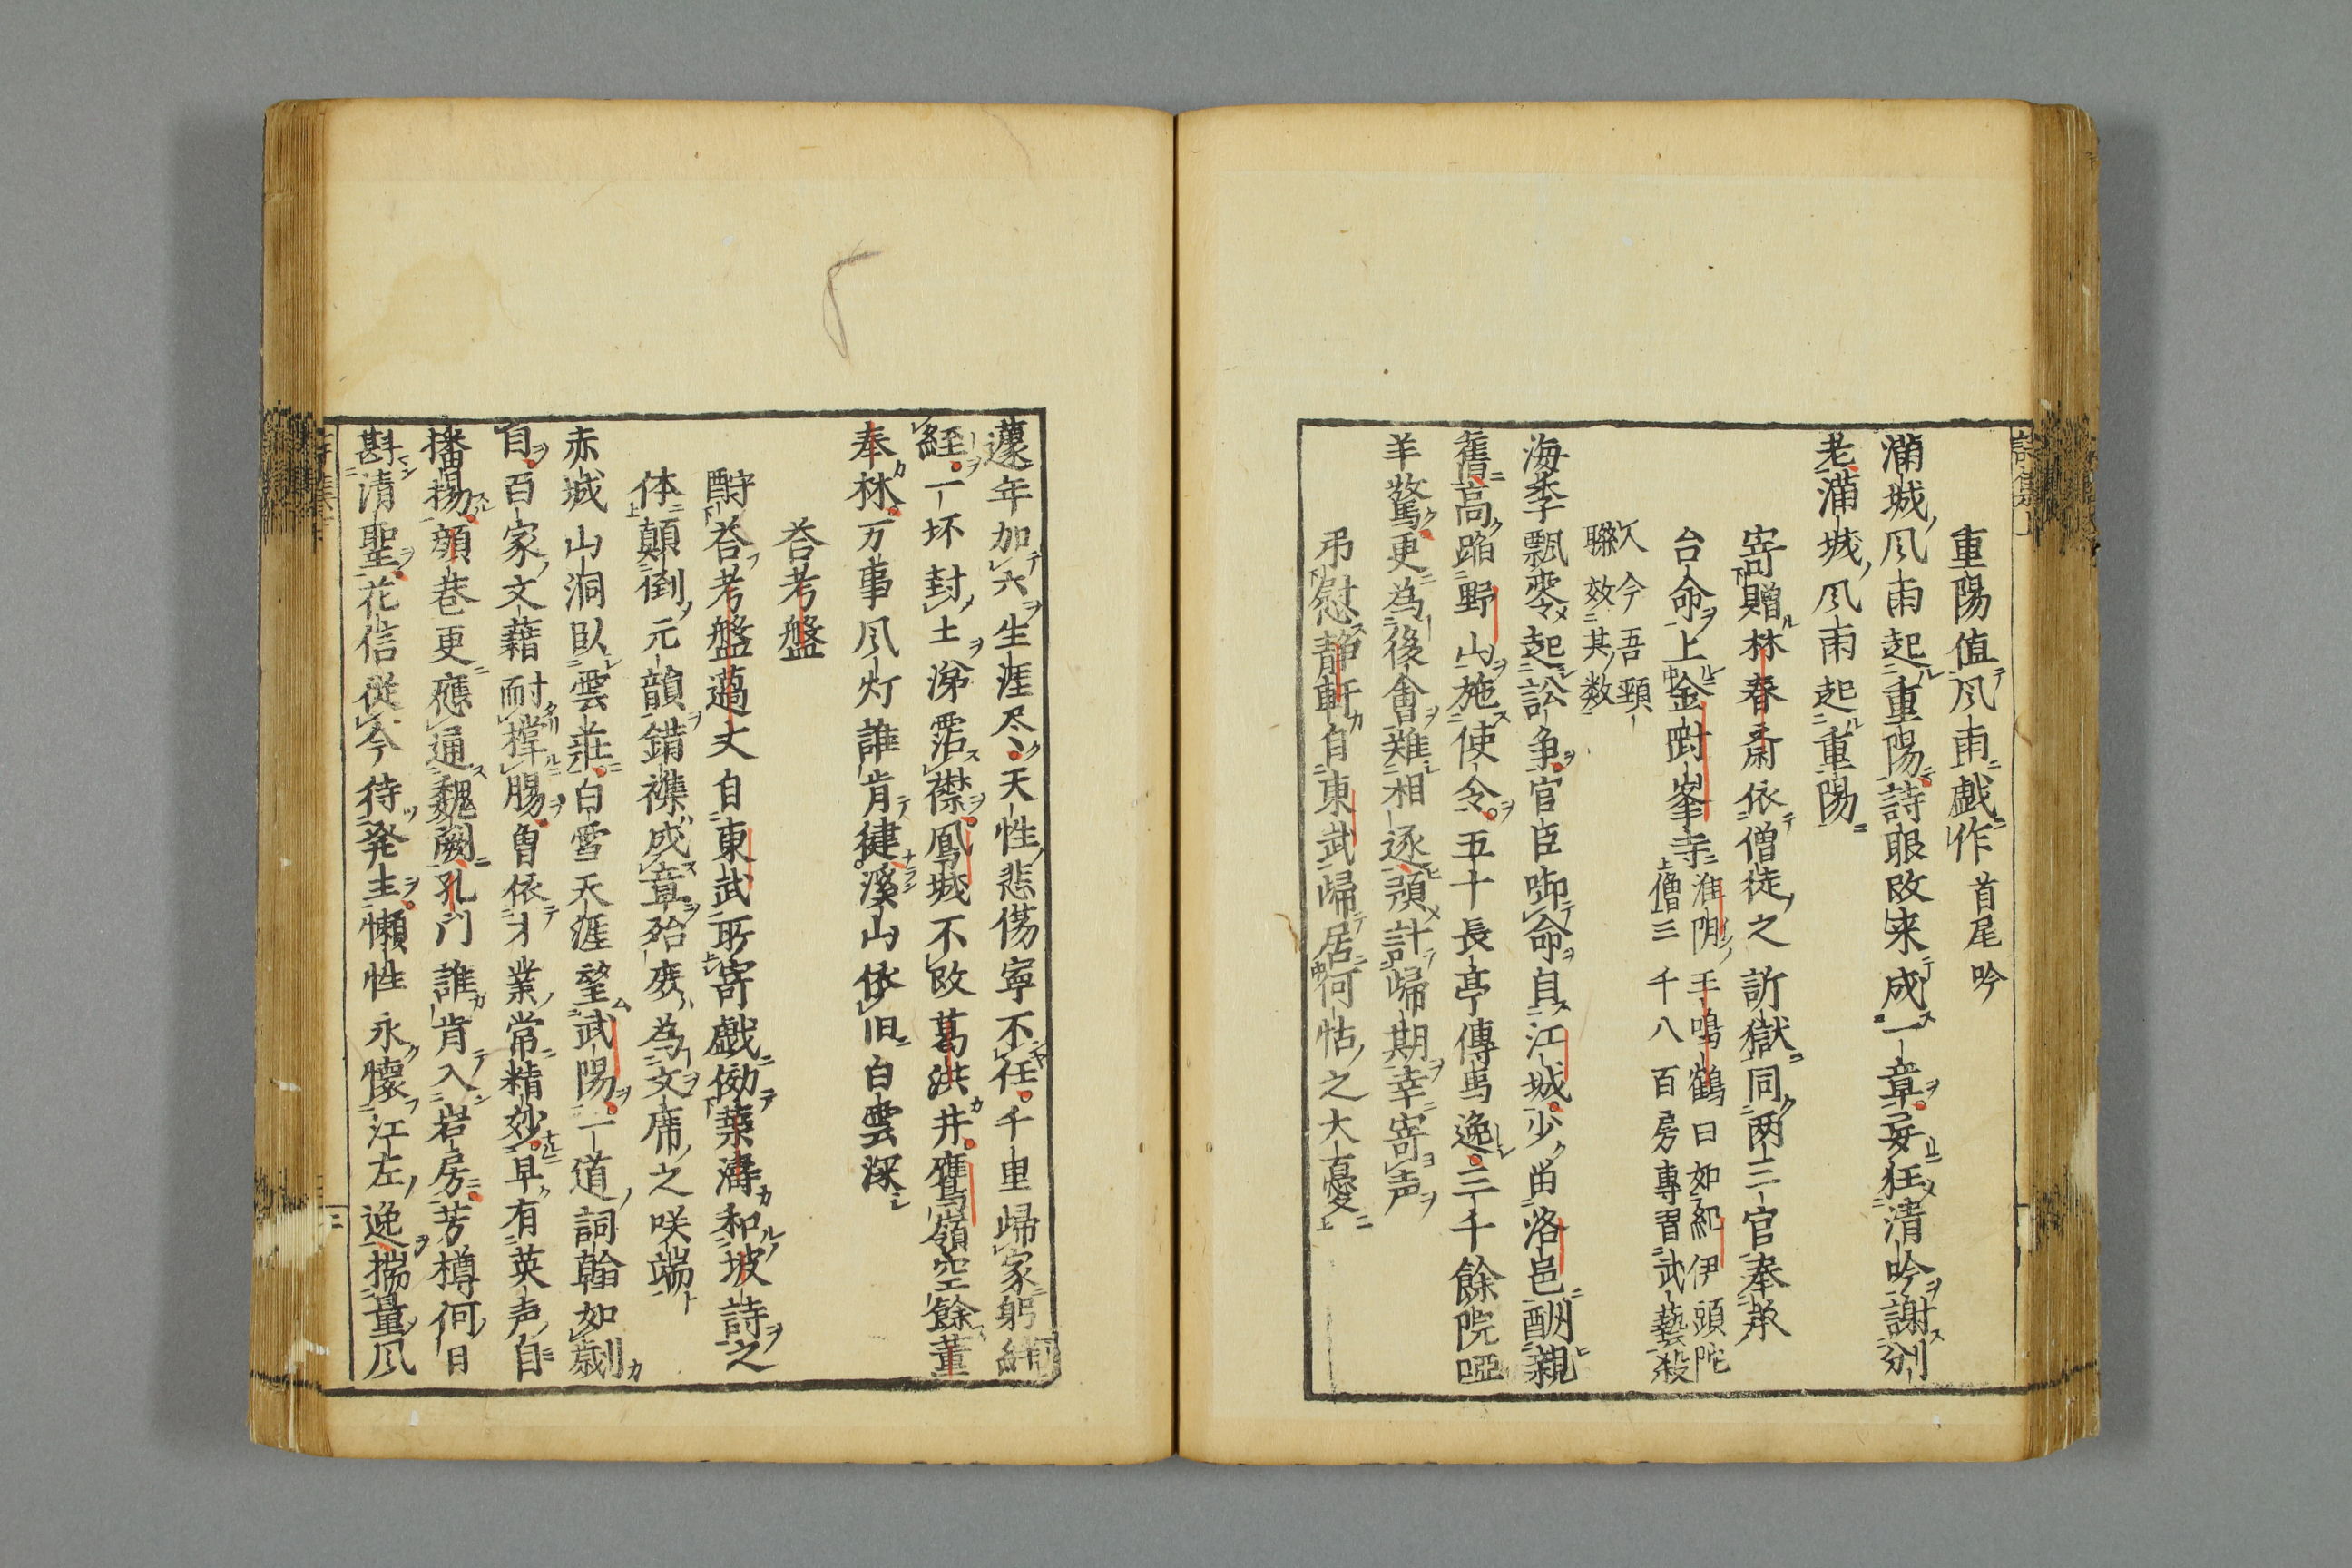 重陽值風雨戲作 首尾吟
滿城風雨起重陽詩眼改来成一章妄狂清吟謝別
老滿城風雨起重陽
寄贈林春斎依僧徒之訴獄同兩三官奉教
台命上金剛峯寺
淮陰王鳴鶴曰如紀伊頭陀
僧三千八百房專習武藝殺
人今吾頸
聯效其数
海季飄零起訟争官臣啣命自江城少留洛邑酬親
舊高踏野山施使令五十長亭傳馬逸三千餘院啞
羊驚更為後會難相逐預計歸期幸寄声
弔慰静軒自東武歸居何怙之大憂
蘧年加六生涯尽天性悲傷寧不任千里歸家躬
絰一坏封土涕霑襟鳳城不改葛洪井鷹嶺空餘董
奉林万事風灯誰肯徤溪山依旧白雲深
答考盤
酧答考盤薖丈自東武所寄戲傚葉濤和坡詩之
体顛倒元韻錯襍成章殆庶為文席之咲端
赤城山洞臥雲荘白雪天涯望武陽一道詞翰如劌
目百家文藉耐撑腸曽依才業常精妙早有英声自
播揚顔巷更應通魏闕孔門誰肯入岩房芳樽何日
斟清聖花信従今待発生懶性永懷江左逸揣量風